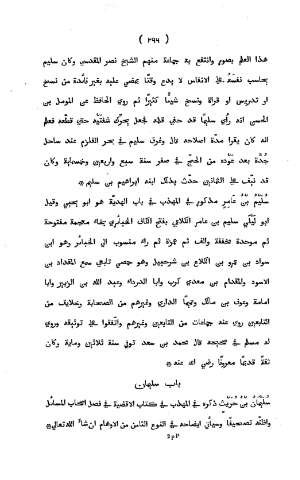 (٢٩٩)
هذا العلم بصور وانتفع به جماعة منهم الشيخ نصر المقدسي وكان سليم
يحاسب نفسه على الانفاس لا يدع وقتا يمضي عليه بغير فائدة من نسخ
او تدريس او قراءة ونسخ شيئا كثيرًا ثم روي الحافظ عن المومل بن
الحسن انه رأي سليما حفي عليه القلم فجعل يحرك شفتيه حتى قطه فعلم
انه كان يقرا مدة اصلاحه قال وغرق سليم في بحر القلزم عند ساحل
جدّة بعد عوده من الحج في صفر سنة سبع واربعين وخمسماية وكان
قد نيّف على الثمانين حدّث بذلك ابنه ابراهيم بن سليم ۞
سُلَيْم بْن عامر مذكور في المهذب في باب الهدية هو ابو يحيي وقيل
ابو لَيْلَي سليم بن عامر الكلاعي بفتح الكاف الخبائري بخاء معجمة مفتوحة
ثم موحدة مخففة والف ثم همزة ثم راء منسوب الي الخبائر وهو ابن
سواد بن عمرو بن الكلاع بن شرحبيل وهو حمصي تابعي سمع المقداد بن
الاسود والمقدام بن معدي كرب وابا الدرداء وعبد الله بن الزبير وابا
امامة وعوف بن مالك وتميمًا الداري وغيرهم من الصحابة وخلايف من
التابعين روي عنه جماعات من التابعين وغيرهم واتفقوا على توثيقه وروي
له مسلم في صحيحه قال محمد بن سعد توفي سنة ثلاثين وماية وكان
ثقة قديمًا معروفًا رضي الله عنه ۞
باب سليمان
سُلَيْمان بْن حُرَيْث ذكره في المهذب في كتاب الاقضية في فصل التحاب المسائل
واظنه تصحيفًا وسيأتي ايضاحه في النوع الثامن من الاوهام ان شاء الله تعالي ۞